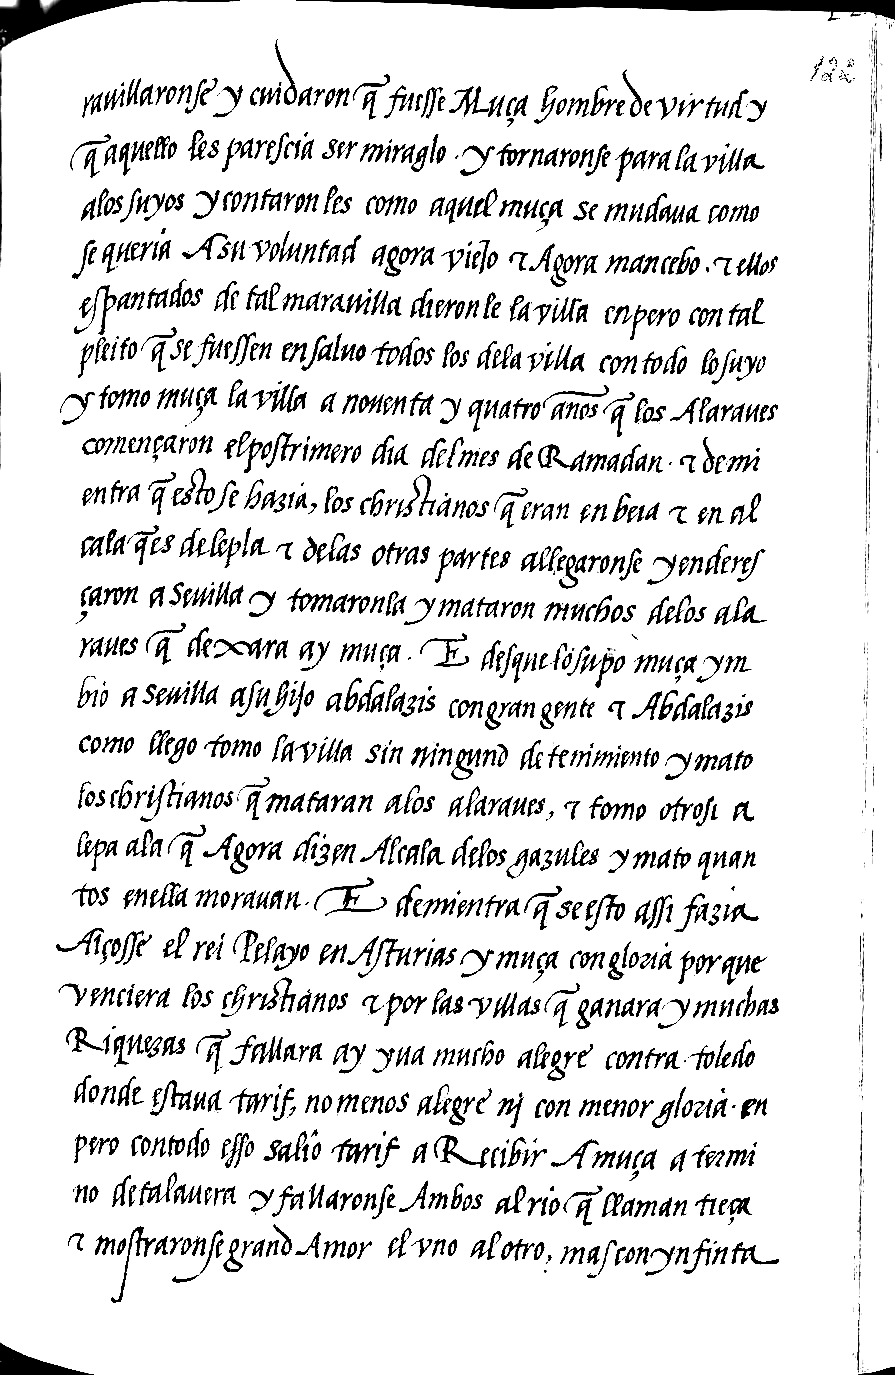 122
rauillaronse y cuidaron q̃ fuesse Muça hombre de virtud y
q̃ aquello les parescia ser miraglo . y tornaronse para la villa
alos suyos y contaron les como aquel muça se mudaua como
se queria A su voluntad agora viejo τ Agora mancebo . τ ellos
espantados de tal marauilla dieron le la villa enpero con tal
pleito q̃ se fuessen en saluo todos los dela villa con todo lo suyo
y tomo muça la villa a nouenta y quatro años q̃ los Alaraues
començaron el postrimero dia del mes de Ramadan . τ de mi
entra q̃ esto se hazia, los christianos q̃ eran en beia τ en al
cala q̃ es de lepla τ delas otras partes allegaronse y enderes
çaron a Seuilla y tomaronla y mataron muchos delos ala
raues q̃ dexara ay muça . E desque lo supo muça ym
bio a Seuilla a su hijo abdalazis con gran gente τ Abdalazis
como llego tomo la villa sin ningund detenimiento y mato
los christianos q̃ mataran alos alaraues, τ tomo otrosi a
lepa ala q̃ Agora dizen Alcala delos gazules y mato quan
tos enella morauan . E demientra q̃ se esto assi fazia
Alçosse el rei Pelayo en Asturias y muça con gloria por que
venciera los christianos τ por las villas q̃ ganara y muchas
Riquezas q̃ fallara ay yua mucho alegre contra toledo
donde estaua tarif, no menos alegre nj con menor gloria . en
pero con todo esso salio tarif a Recibir A muça a termi
no de talauera y fallaronse Ambos al rio q̃ llaman tieça
τ mostraronse grand Amor el vno al otro, mas con ynfinta